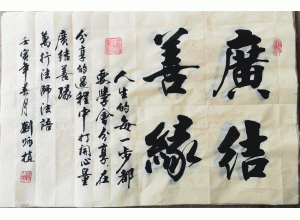 廣結
善緣
人生的每一步都
要學會分享在
分享的過程中打開心量
廣结善緣
萬行法師法語
壬寅年春月劉炳植